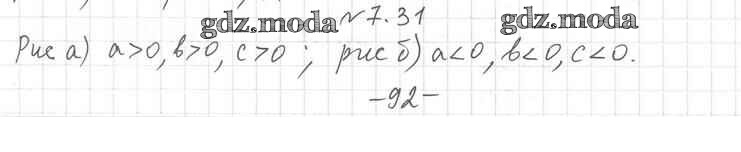 gdz.moda №7.31 gdz.moda
Рис а) a>0, b>0, c>0 ; рис б) a<0, b<0, c<0.
-92-